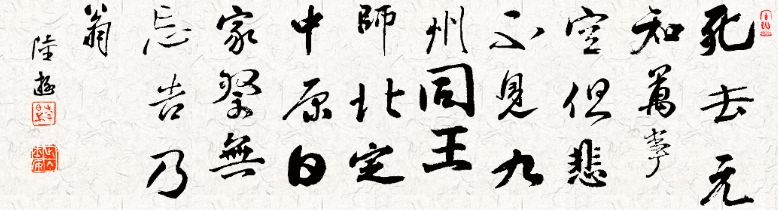 死去元
知萬事
空但悲
不見九
州同王
師北定
中原日
家祭無
忘告乃
翁
陸游